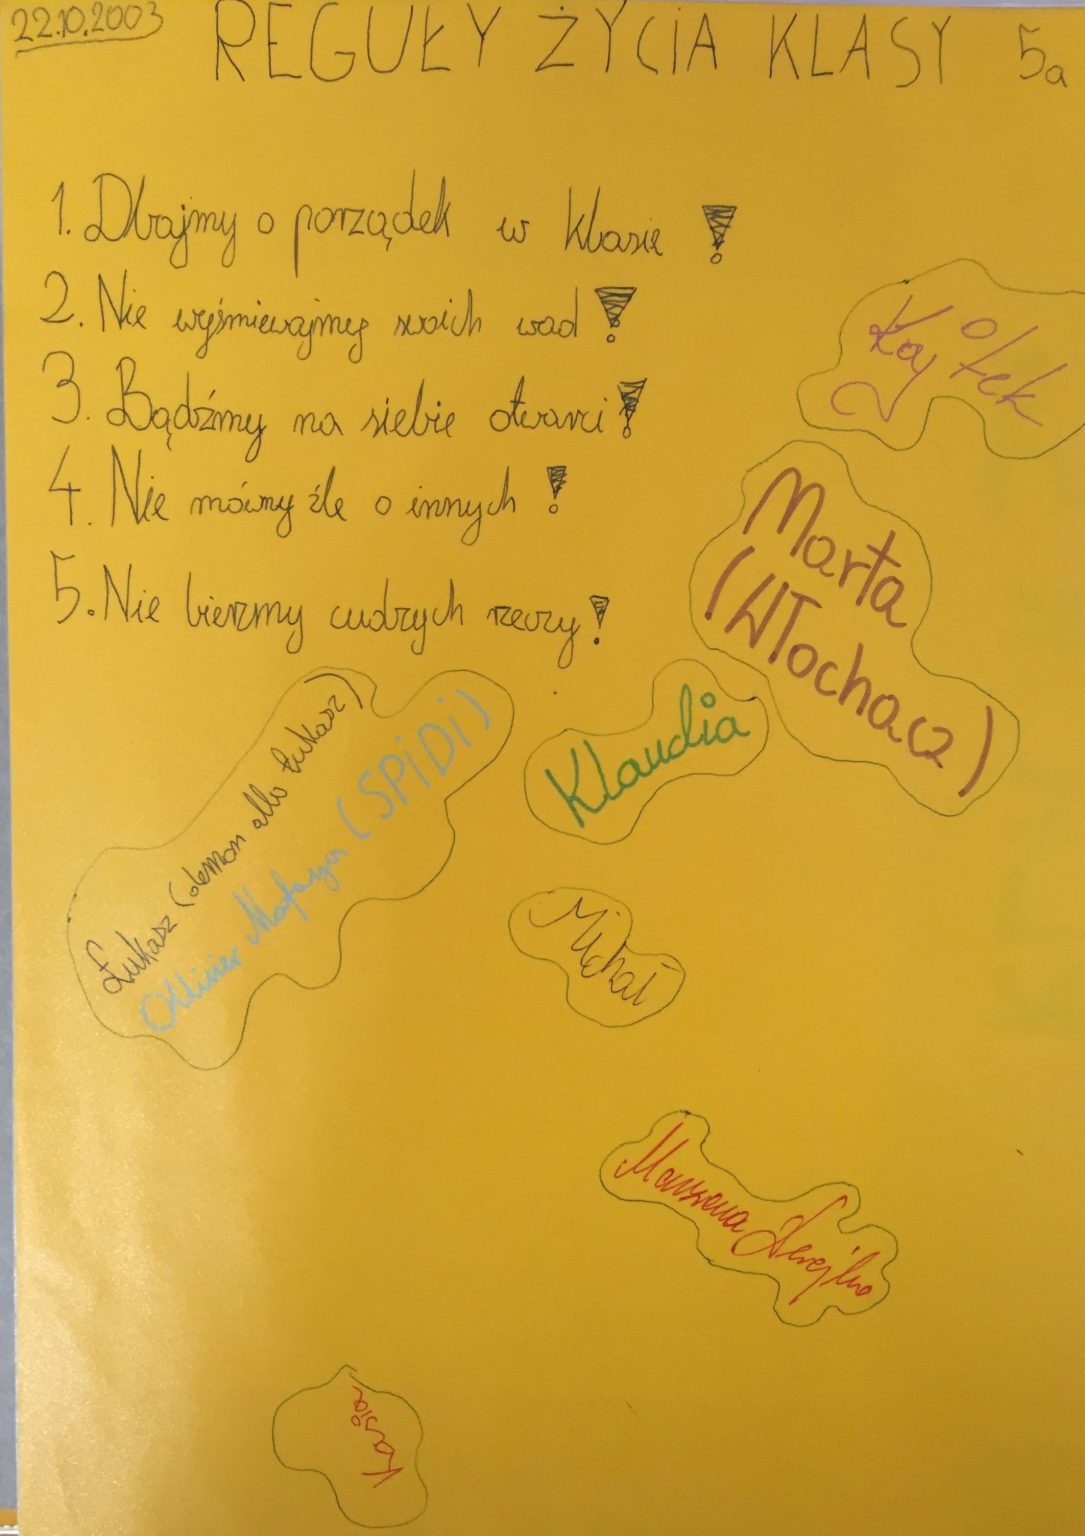 22.10.2003
REGUŁY ŻYCIA KLASY 5a
1. Dbajmy o porządek w klasie!
2. Nie wyśmiewajmy swoich wad!
3. Bądźmy na siebie otwarci!
4. Nie mówmy źle o innych!
5. Nie bierzmy cudzych rzeczy!
Kajtek
Marta
(Włochacz)
Klaudia
Łukasz (demon albo Łukasz)
Oliwier (SPiDi)
Michał
Marzena
Kasia